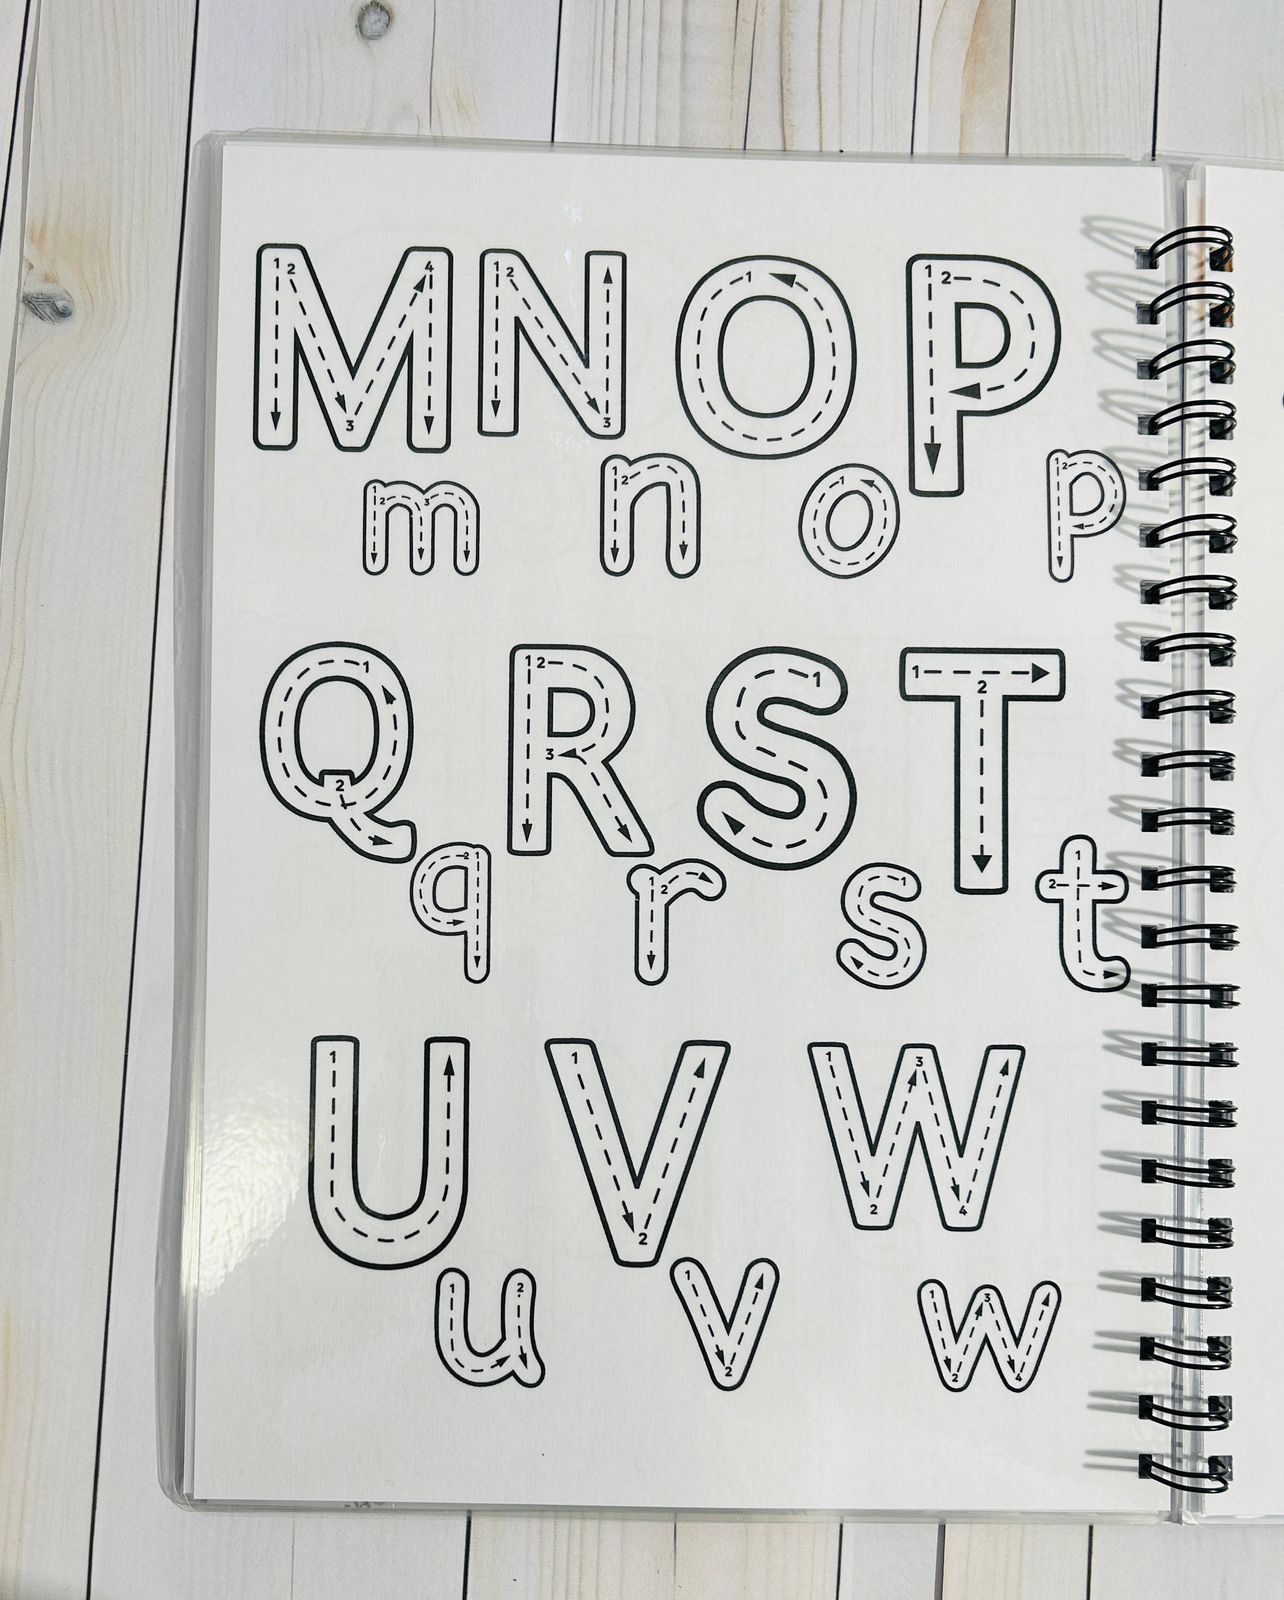 M N O P
m n o p
Q R S T
q r s t
U V W
u v w